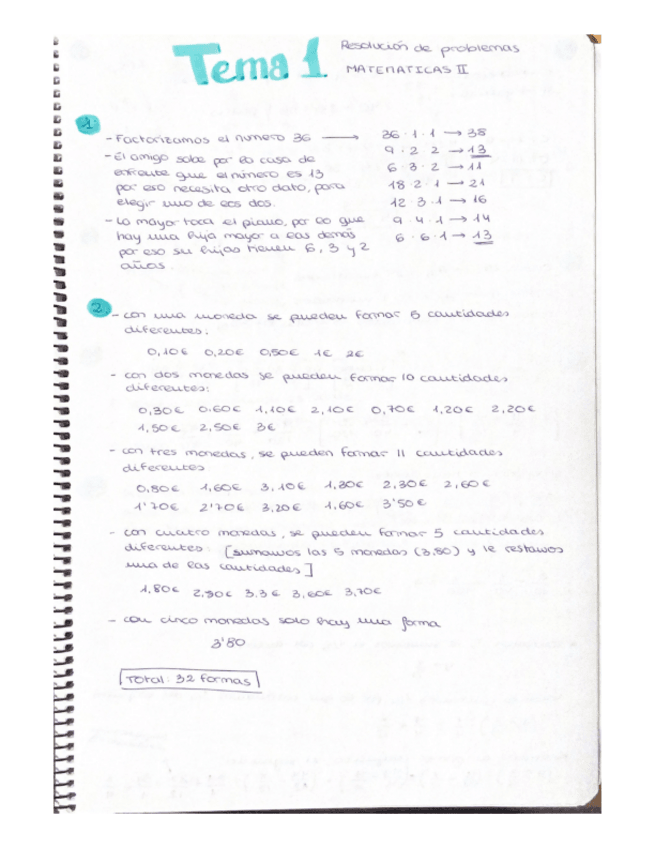 Tema 1
Resolución de problemas
MATEMATICAS II
1
- Factorizamos el numero 36 →
- El amigo sabe por la casa de
enfrente que el número es 13
por eso necesita otro dato, para
elegir uno de los dos.
- La mayor toca el piano, por lo que
hay una hija mayor a las demás
por eso su hijas tienen 6, 3 y 2
años.
36 · 1 · 1 → 38
9 · 2 · 2 → 13
6 · 3 · 2 → 11
18 · 2 · 1 → 21
12 · 3 · 1 → 16
9 · 4 · 1 → 14
6 · 6 · 1 → 13
2
- con una moneda se pueden formar 5 cantidades
diferentes:
0,10€ 0,20€ 0,50€ 1€ 2€
- con dos monedas se pueden formar 10 cantidades
diferentes:
0,30€ 0,60€ 1,10€ 2,10€ 0,70€ 1,20€ 2,20€
1,50€ 2,50€ 3€
- con tres monedas, se pueden formar 11 cantidades
diferentes
0,80€ 1,60€ 3,10€ 1,30€ 2,30€ 2,60€
1'70€ 2'70€ 3,20€ 1,60€ 3'50€
- con cuatro monedas, se pueden formar 5 cantidades
diferentes [sumamos las 5 monedas (3,80) y le restamos
una de las cantidades]
1,80€ 2,80€ 3,3€ 3,60€ 3,70€
- con cinco monedas solo hay una forma
3'80
Total: 32 formas